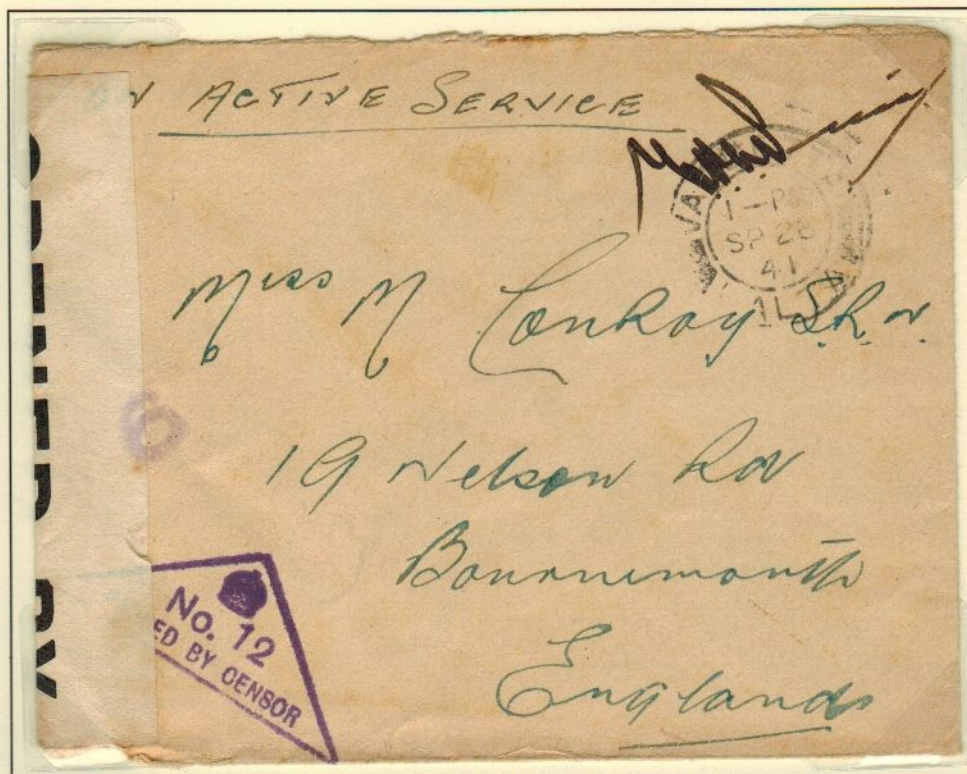 ON ACTIVE SERVICE
1 - PM
SP 26
41
Miss M Conroy S.R.N.
19 Nelson Rd
Bournemouth
England
OPENED BY
6
No. 12
ED BY CENSOR